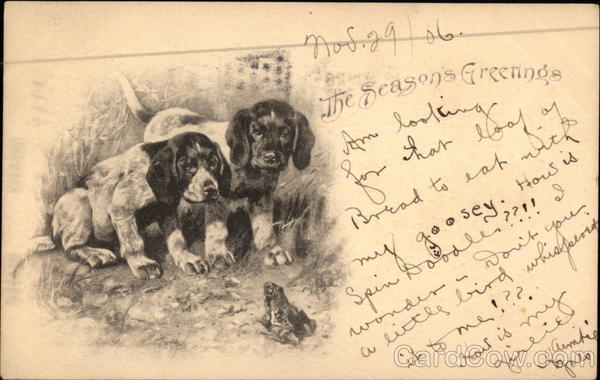 Nov. 29/06.
The Season's Greetings
Am looking
for that loaf of
Bread to eat with
my goosey. How is
Spin Doodles??!! I
wonder - Don't you.
a little bird whispered
it to me!??
How is my
girlie
Auntie
CardCow.com